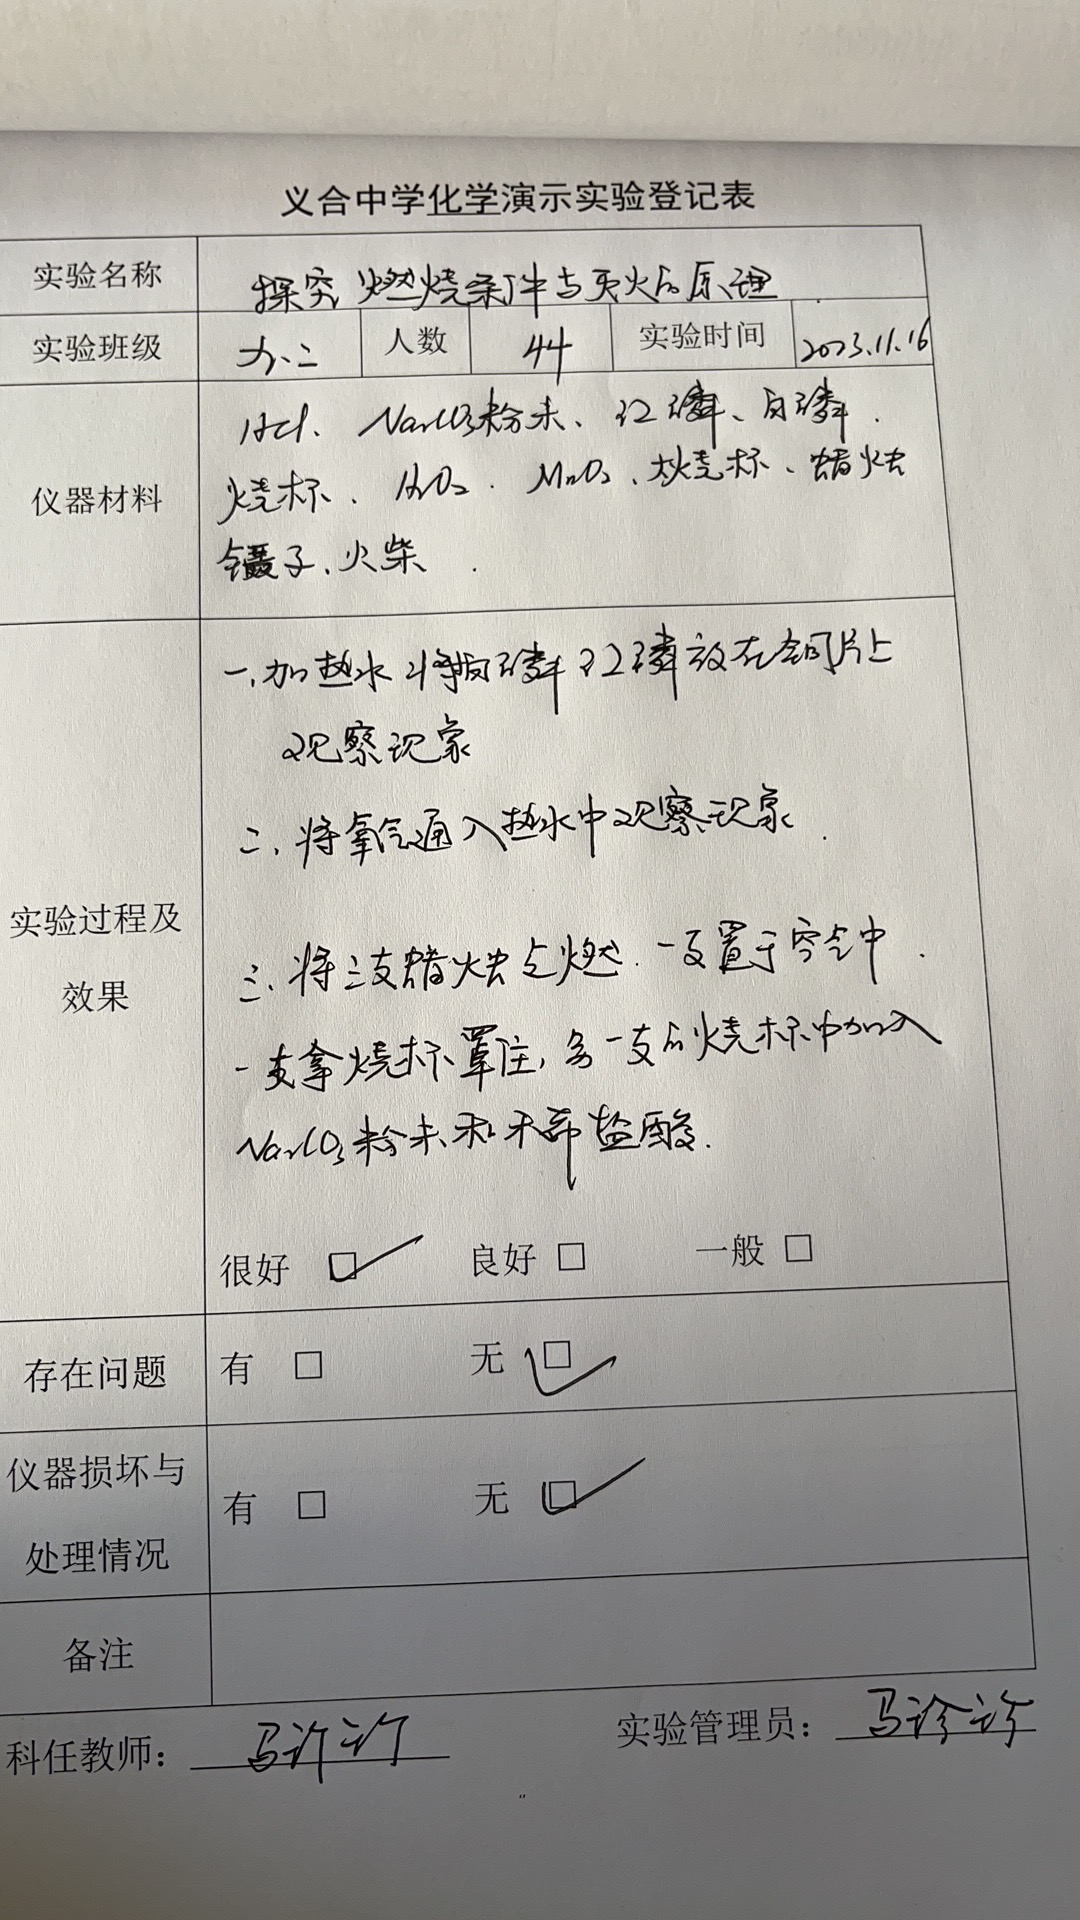 义合中学化学演示实验登记表
实验名称 探究燃烧条件与灭火的原理
实验班级 九.二 人数 44 实验时间 2023.11.16
HCl、Na₂CO₃粉末、红磷、白磷.
仪器材料 烧杯、H₂O₂、MnO₂、大烧杯、蜡烛
镊子、火柴.
一.加热水将白磷红磷放在铜片上
观察现象
二.将氧气通入热水中观察现象.
实验过程及
效果
三.将三支蜡烛点燃.一支置于空气中.
一支拿烧杯罩住,另一支的烧杯中加入
Na₂CO₃粉末和稀盐酸.
很好 □ 良好 □ 一般 □
存在问题 有 □ 无 □
仪器损坏与
处理情况 有 □ 无 □
备注
科任教师: 实验管理员: